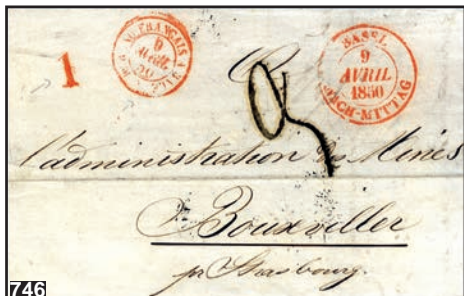 1
BUREAU FRANÇAIS A BALE
9
AVRIL
50
BASEL
9
AVRIL
1850
NACH-MITTAG
A
l'administration des Mines
Bouxviller
pr Strasbourg.
746